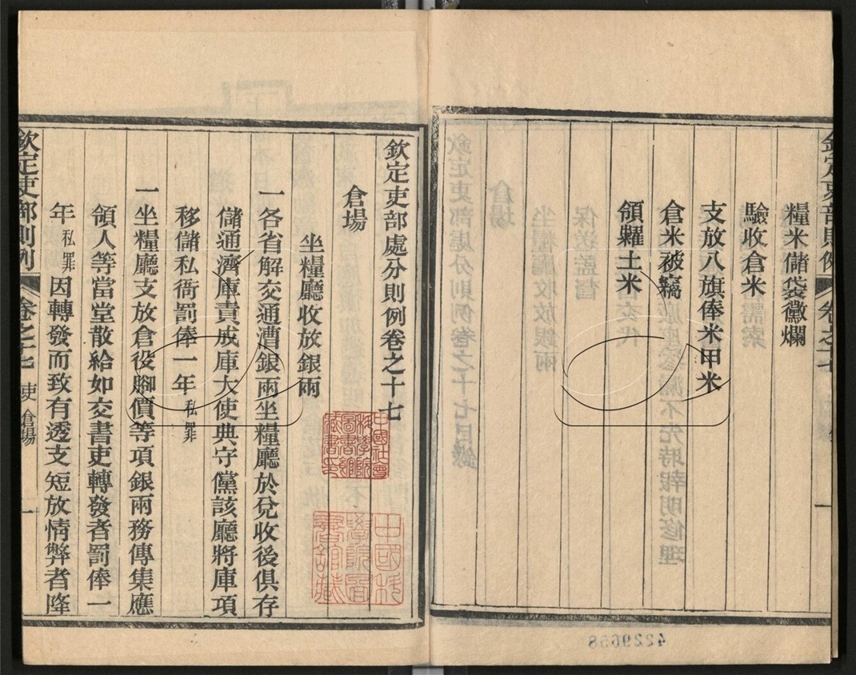 欽定吏部則例 卷之十七
糧米儲袋黴爛
驗收倉米
支放八旗俸米甲米
倉米被竊
領糶土米
欽定吏部處分則例卷之十七
倉場
坐糧廳收放銀兩
一各省解交通漕銀兩坐糧廳於兌收後俱存
儲通濟庫責成庫大使典守黨該廳將庫項
移儲私衙罰俸一年私罪
一坐糧廳支放倉役腳價等項銀兩務傳集應
領人等當堂散給如交書吏轉發者罰俸一
年私罪因轉發而致有透支短放情弊者降
欽定吏部則例 卷之十七 吏 倉場 一
中國社會科學院圖書館藏書印
中國科學院圖書館藏
4229658